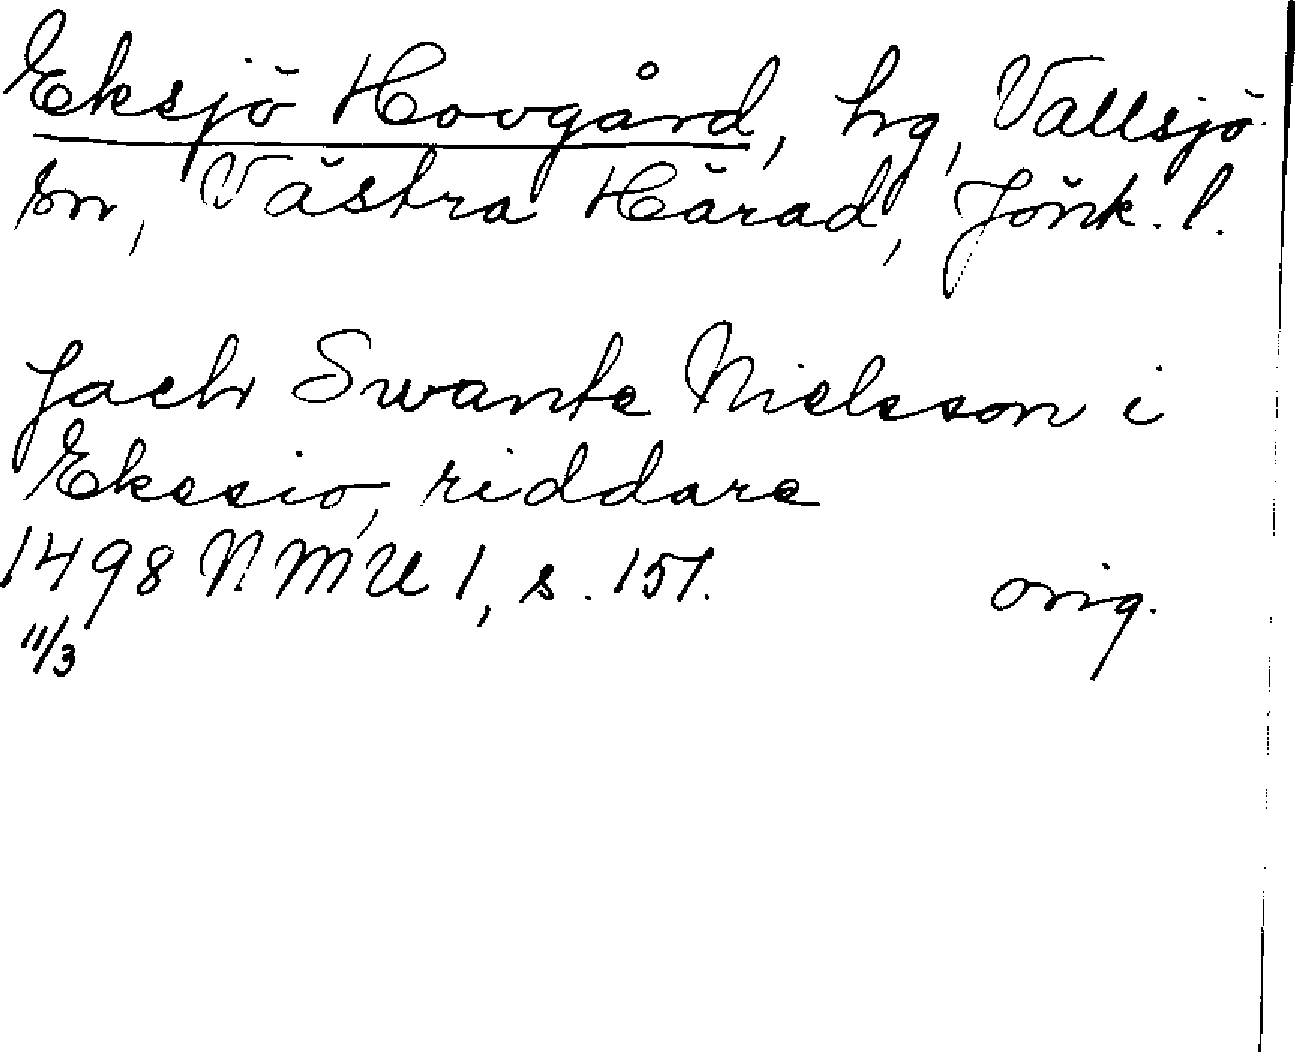 Eksjö Hovgård, hg, Vallsjö
sn, Västra Härad, Jönk. l.
Jach Swante Nielsson i
Ekesio, riddare
1498 NMU 1, s. 151. orig.
11/3